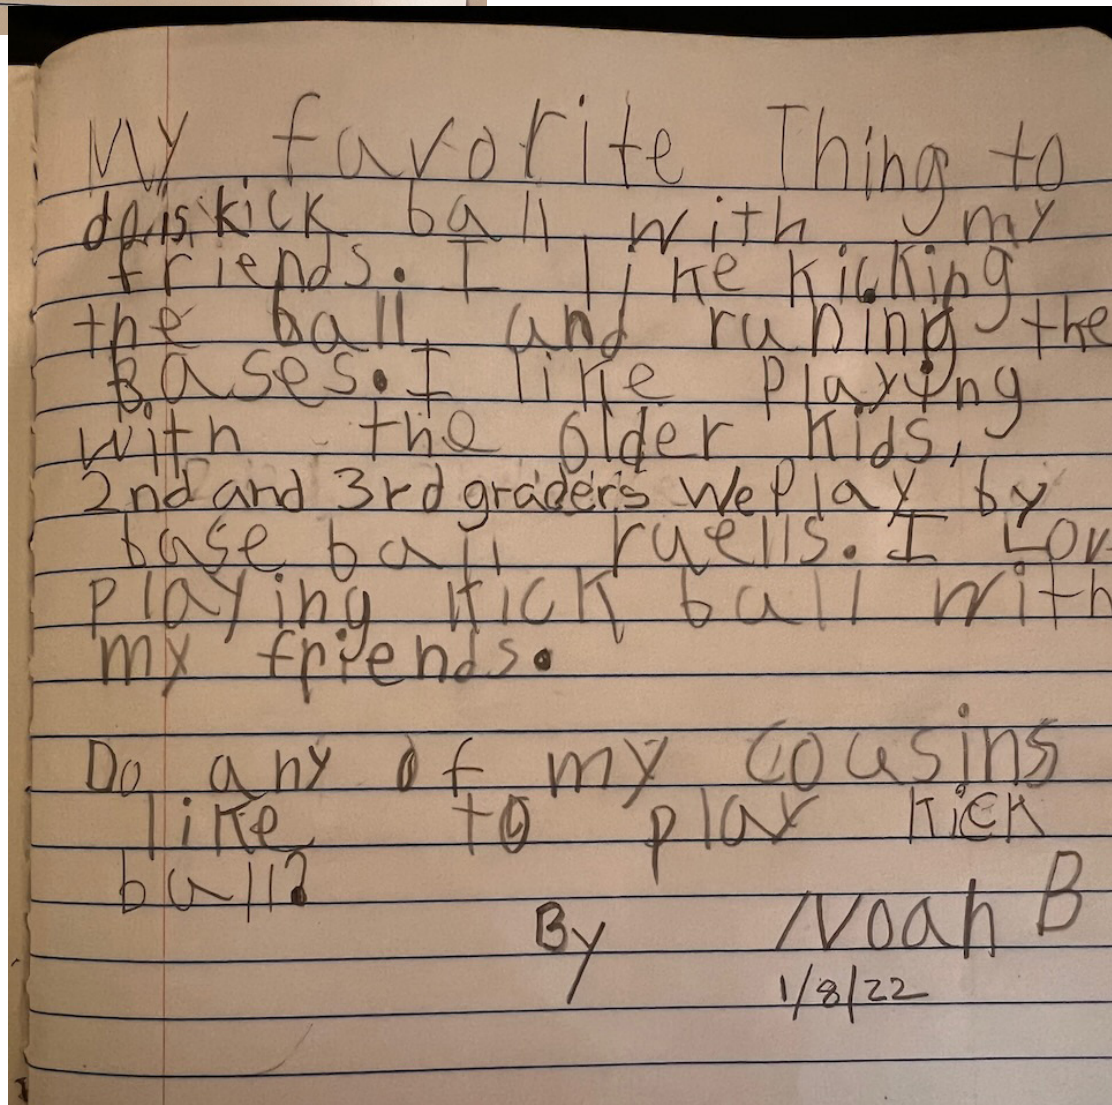 My favorite Thing to
do is kick ball with my
friends. I like kicking
the ball and runing the
Bases. I like Playing
with the older Kids,
2nd and 3rd graders We Play by
base ball ruells. I Lov
Playing kick ball with
my friends.
Do any of my Cousins
like to play kick
ball?
By Noah B
1/8/22